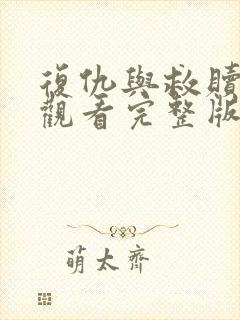 復仇與救贖
觀看完整版
萌太齊